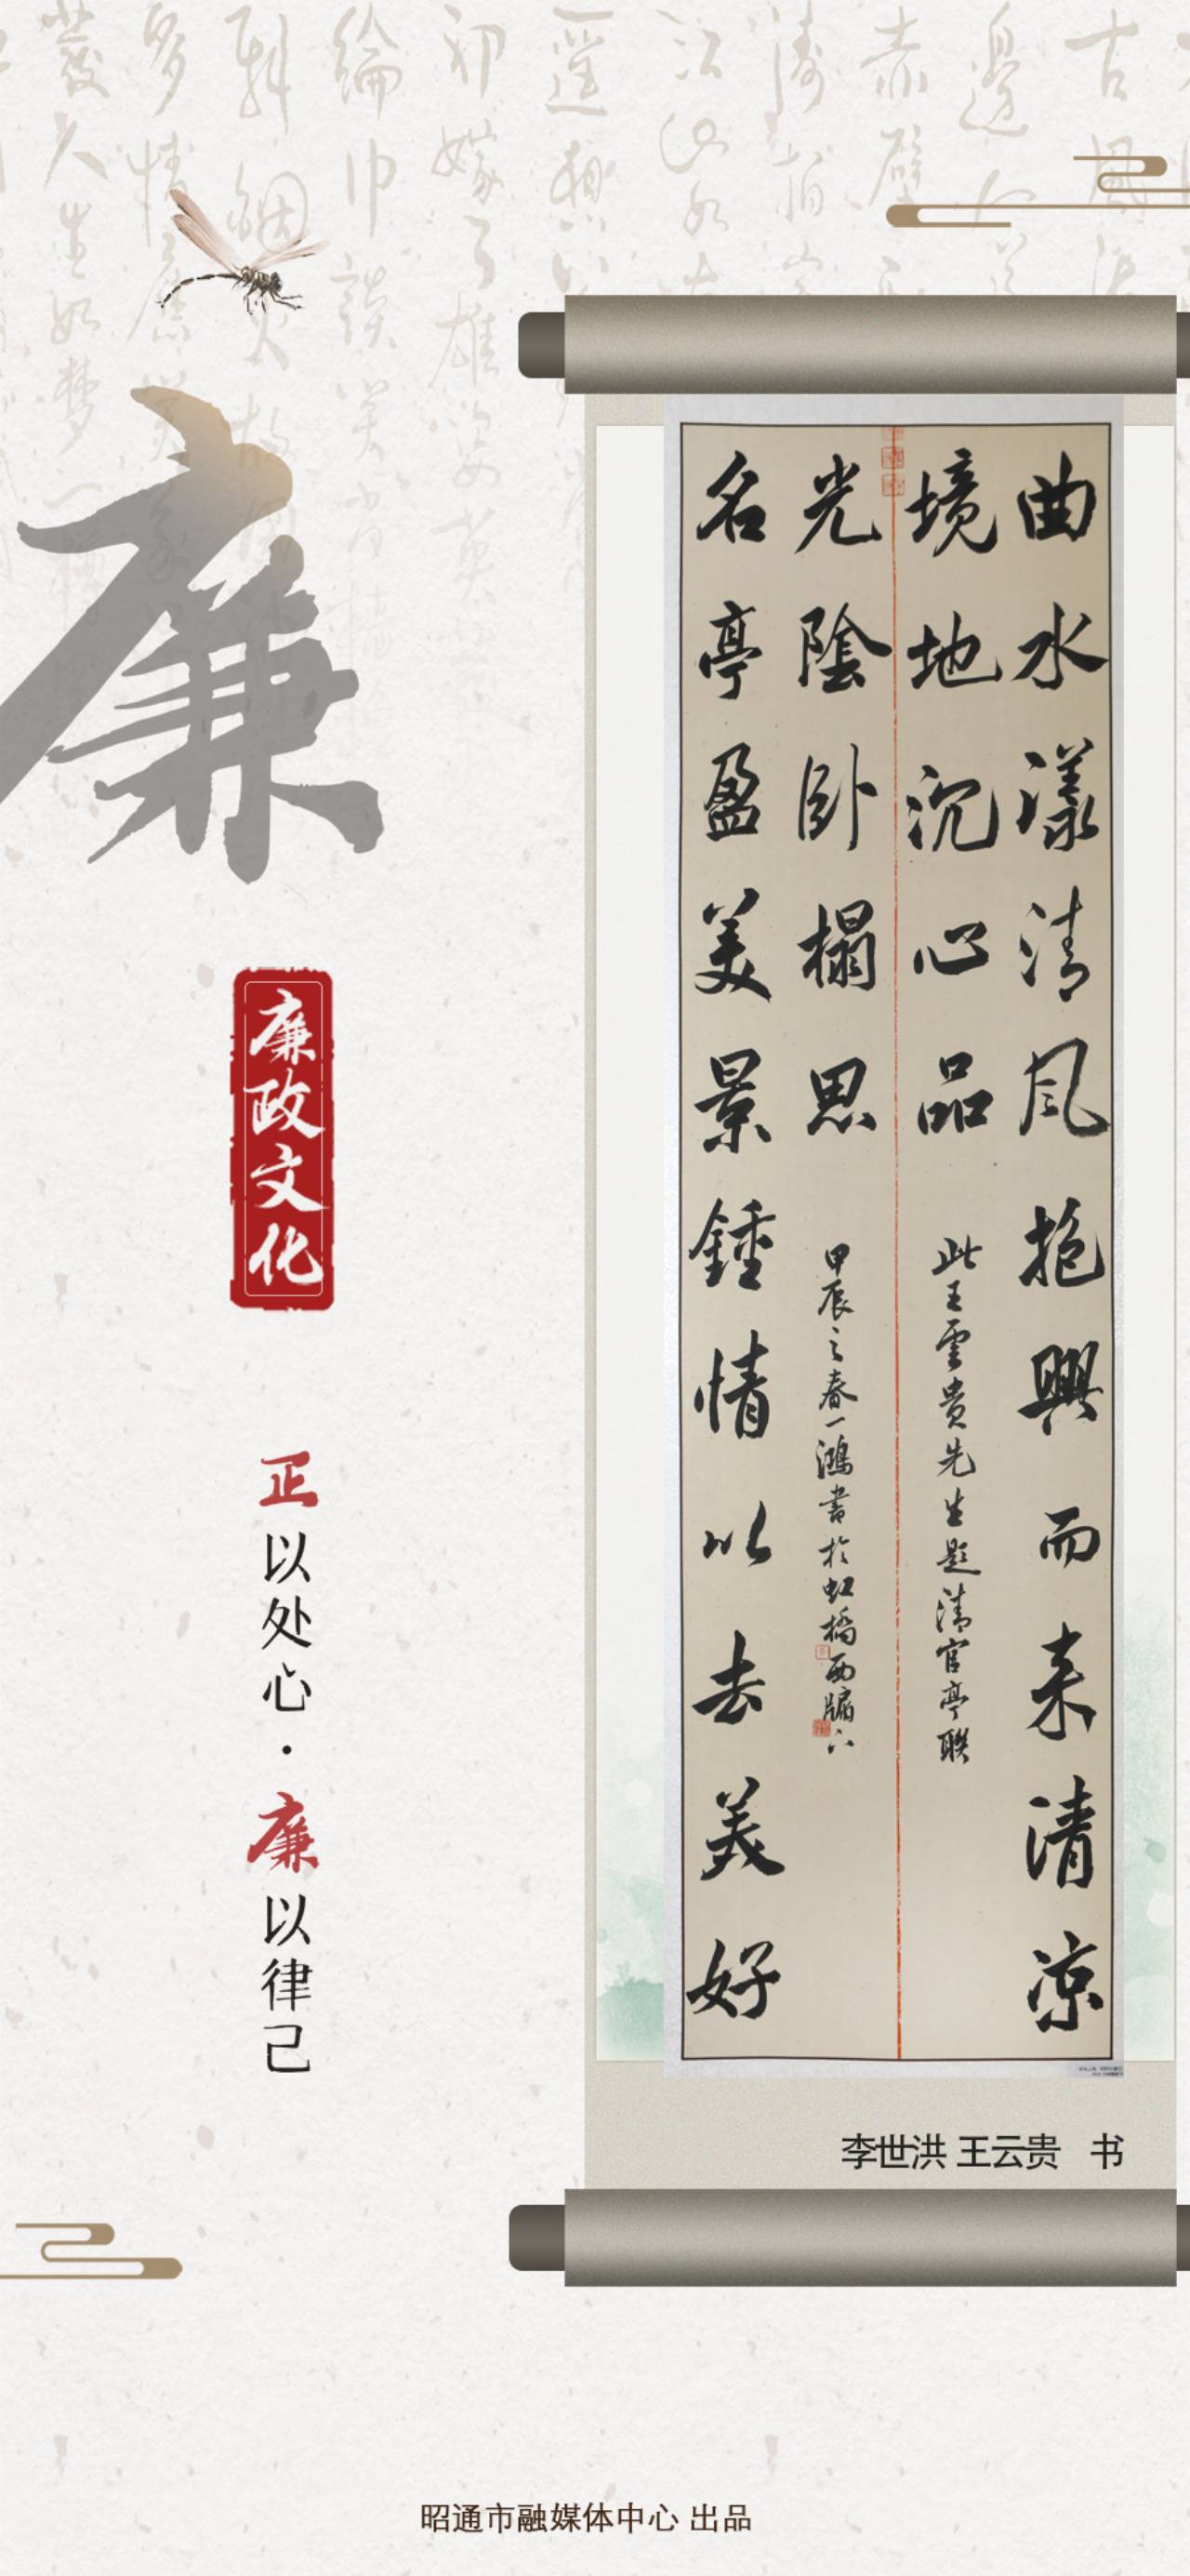 廉
廉政文化
正以处心·廉以律己
曲水漾清风抱興而来清凉
境地沉心品
此王雲貴先生題清官亭聯
名亭盈美景鍾情以去美好
光陰卧榻思
甲辰之春一鴻書於虹橋西牖下
李世洪 王云贵 书
昭通市融媒体中心 出品